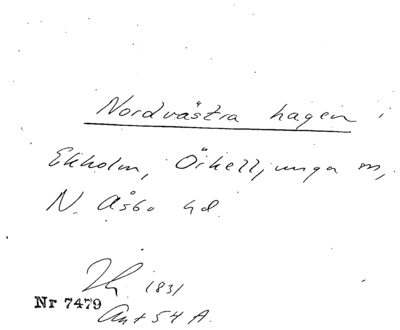 Nordvästra hagen i
Ekholm, Örkelljunga sn,
N. Åsbo hd.
Th. 1831
Nr 7479
Ant 54 A.